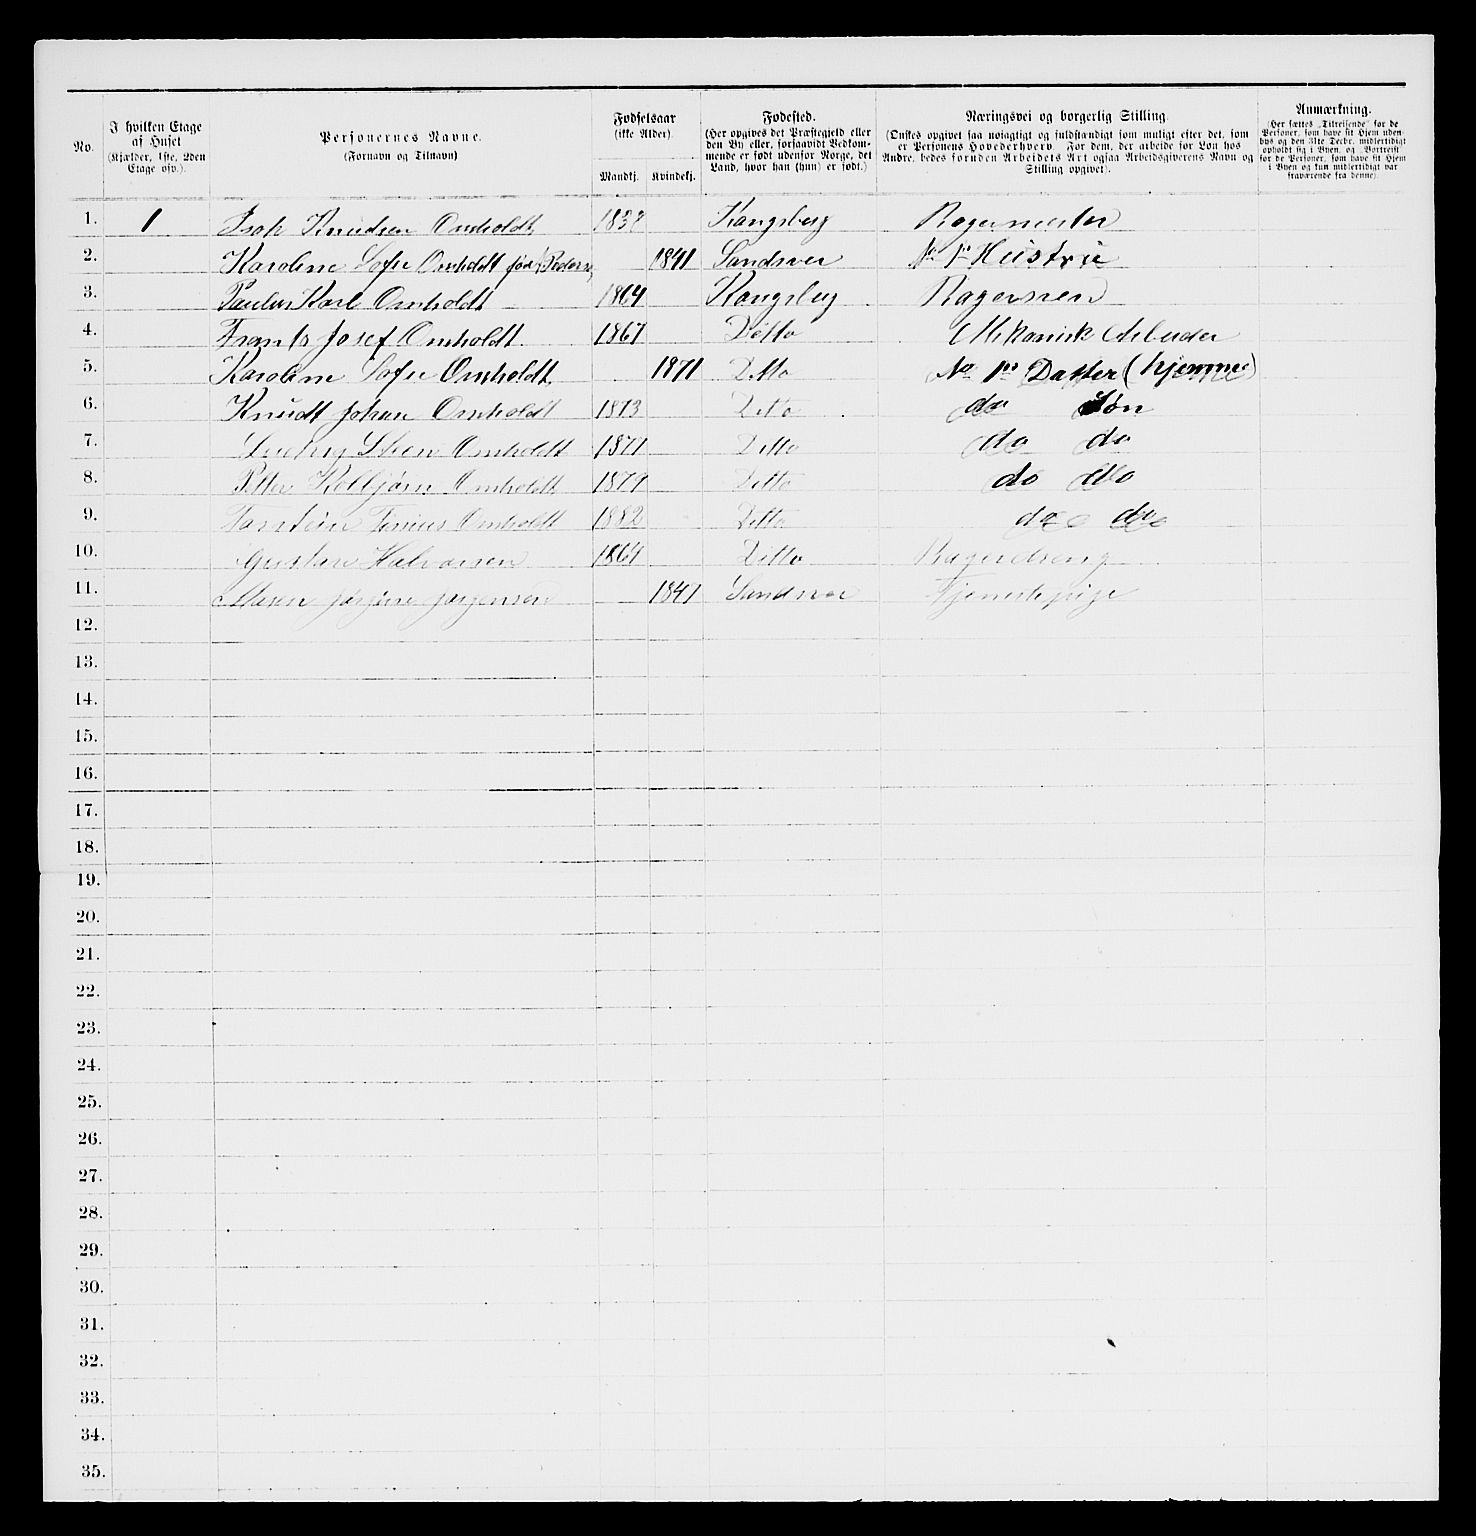 No.
I hvilken Etage af Huset (Kjælder, 1ste, 2den Etage osv.).
Personernes Navne. (Fornavn og Tilnavn)
Fødselsaar (ikke Alder).
Mandkj. Kvindekj.
Fødested. (Her opgives det Præstegjeld eller den By eller, forsaavidt Vedkommende er født udenfor Norge, det Land, hvor han (hun) er født.)
Næringsvei og borgerlig Stilling. (Ønskes opgivet saa nøiagtigt og fuldstændigt som muligt efter det, som er Personens Hovederhverv. For dem, der arbeide for Løn hos Andre, bedes foruden Arbeidets Art ogsaa Arbeidsgiverens Navn og Stilling opgivet).
Anmærkning. (Her sættes „Tilreisende“ for de Personer, som have sit Hjem udenbys og den 31te Decbr. midlertidigt opholdt sig i Byen, og „Bortreist“ for de Personer, som have sit Hjem i Byen og kun midlertidigt var fraværende fra denne).
1. 1 Isak Knudsen Omholdt 1837 Kongsberg Bagermester
2. Karoline Sofie Omholdt fød Peders 1841 Sandsver No 1s Hustru
3. Paulus Karl Omholdt 1864 Kongsberg Bagersven
4. Frants Josef Omholdt. 1867 Ditto Mekanisk Arbeider
5. Karoline Sofie Omholdt 1871 Ditto No 1s Datter (hjemme)
6. Knudt Johan Omholdt 1873 Ditto do Søn
7. Steen Omholdt 1877 Ditto do do
8. Petter Kolbjørn Omholdt 1879 Ditto do do
9. Torstein Tinius Omholdt 1882 Ditto do do
10. Gustav Halvorsen 1864 Ditto
11. Maren Jørgine Jørgensen 1847 Sandsver Tjenestepige
12.
13.
14.
15.
16.
17.
18.
19.
20.
21.
22.
23.
24.
25.
26.
27.
28.
29.
30.
31.
32.
33.
34.
35.